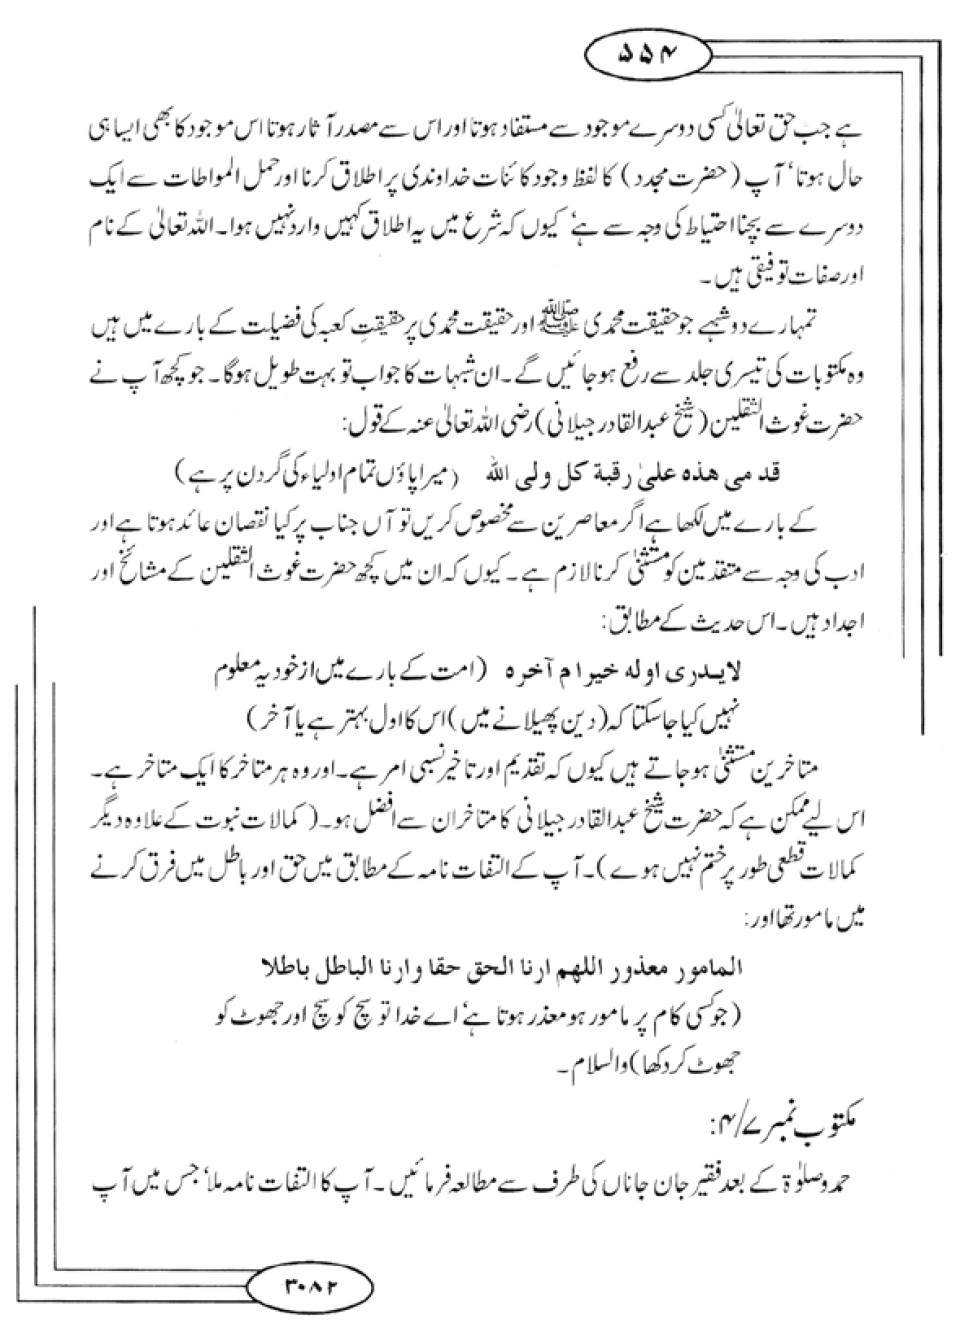 ۵۵۴
ہے جب حق تعالیٰ کسی دوسرے موجود سے مستفاد ہوتا اور اس سے مصدر آثار ہوتا اس موجود کا بھی ایسا ہی
حال ہوتا‘ آپ (حضرت مجدد) کا لفظ وجود کا ئنات خداوندی پر اطلاق کرنا اور حمل المواطات سے ایک
دوسرے سے بچنا احتیاط کی وجہ سے ہے‘ کیوں کہ شرع میں یہ اطلاق کہیں وارد نہیں ہوا۔ اللہ تعالیٰ کے نام
اور صفات توفیقی ہیں۔
تمہارے دو شبہے جو حقیقت محمدی ﷺ اور حقیقت محمدی پر حقیقتِ کعبہ کی فضیلت کے بارے میں ہیں
وہ مکتوبات کی تیسری جلد سے رفع ہو جائیں گے۔ ان شبہات کا جواب تو بہت طویل ہوگا۔ جو کچھ آپ نے
حضرت غوث الثقلین (شیخ عبدالقادر جیلانی) رضی اللہ تعالیٰ عنہ کے قول:
قدمی هذه علیٰ رقبة کل ولی الله (میرا پاؤں تمام اولیاء کی گردن پر ہے)
کے بارے میں لکھا ہے اگر معاصرین سے مخصوص کریں تو آں جناب پر کیا نقصان عائد ہوتا ہے اور
ادب کی وجہ سے متقدمین کو مستثنیٰ کرنا لازم ہے۔ کیوں کہ ان میں کچھ حضرت غوث الثقلین کے مشائخ اور
اجداد ہیں۔ اس حدیث کے مطابق:
لایدری اوله خیرام آخره (امت کے بارے میں از خود یہ معلوم
نہیں کیا جاسکتا کہ (دین پھیلانے میں) اس کا اول بہتر ہے یا آخر)
متاخرین مستثنیٰ ہو جاتے ہیں کیوں کہ تقدیم اور تاخیر نسبی امر ہے۔ اور وہ ہر متاخر کا ایک متاخر ہے۔
اس لیے ممکن ہے کہ حضرت شیخ عبدالقادر جیلانی کا متاخر ان سے افضل ہو۔ (کمالات نبوت کے علاوہ دیگر
کمالات قطعی طور پر ختم نہیں ہوے)۔ آپ کے التفات نامہ کے مطابق میں حق اور باطل میں فرق کرنے
میں مامور تھا اور:
المامور معذور اللهم ارنا الحق حقا وارنا الباطل باطلا
(جو کسی کام پر مامور ہو معذر ہوتا ہے‘ اے خدا تو سچ کو سچ اور جھوٹ کو
جھوٹ کر دکھا) والسلام۔
مکتوب نمبر ۷/۴:
حمد و صلوٰۃ کے بعد فقیر جان جاناں کی طرف سے مطالعہ فرمائیں۔ آپ کا التفات نامہ ملا‘ جس میں آپ
۳۰۸۲